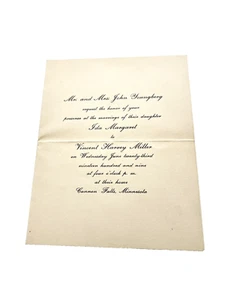 Mr. and Mrs. John Youngberg
request the honor of your
presence at the marriage of their daughter
Ida Margaret
to
Vincent Harvey Miller
on Wednesday June twenty-third
nineteen hundred and nine
at four o'clock p. m.
at their home
Cannon Falls, Minnesota